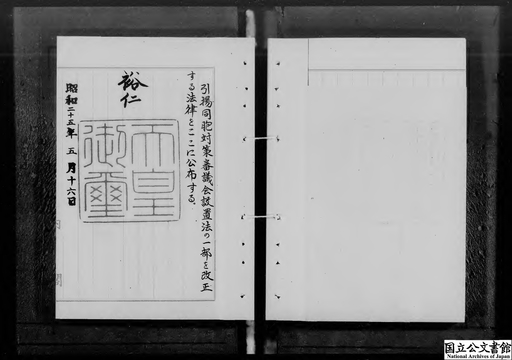 引揚同胞対策審議会設置法の一部を改正
する法律をここに公布する。
裕仁
天皇
御璽
昭和二十五年五月十六日
内閣
国立公文書館
National Archives of Japan